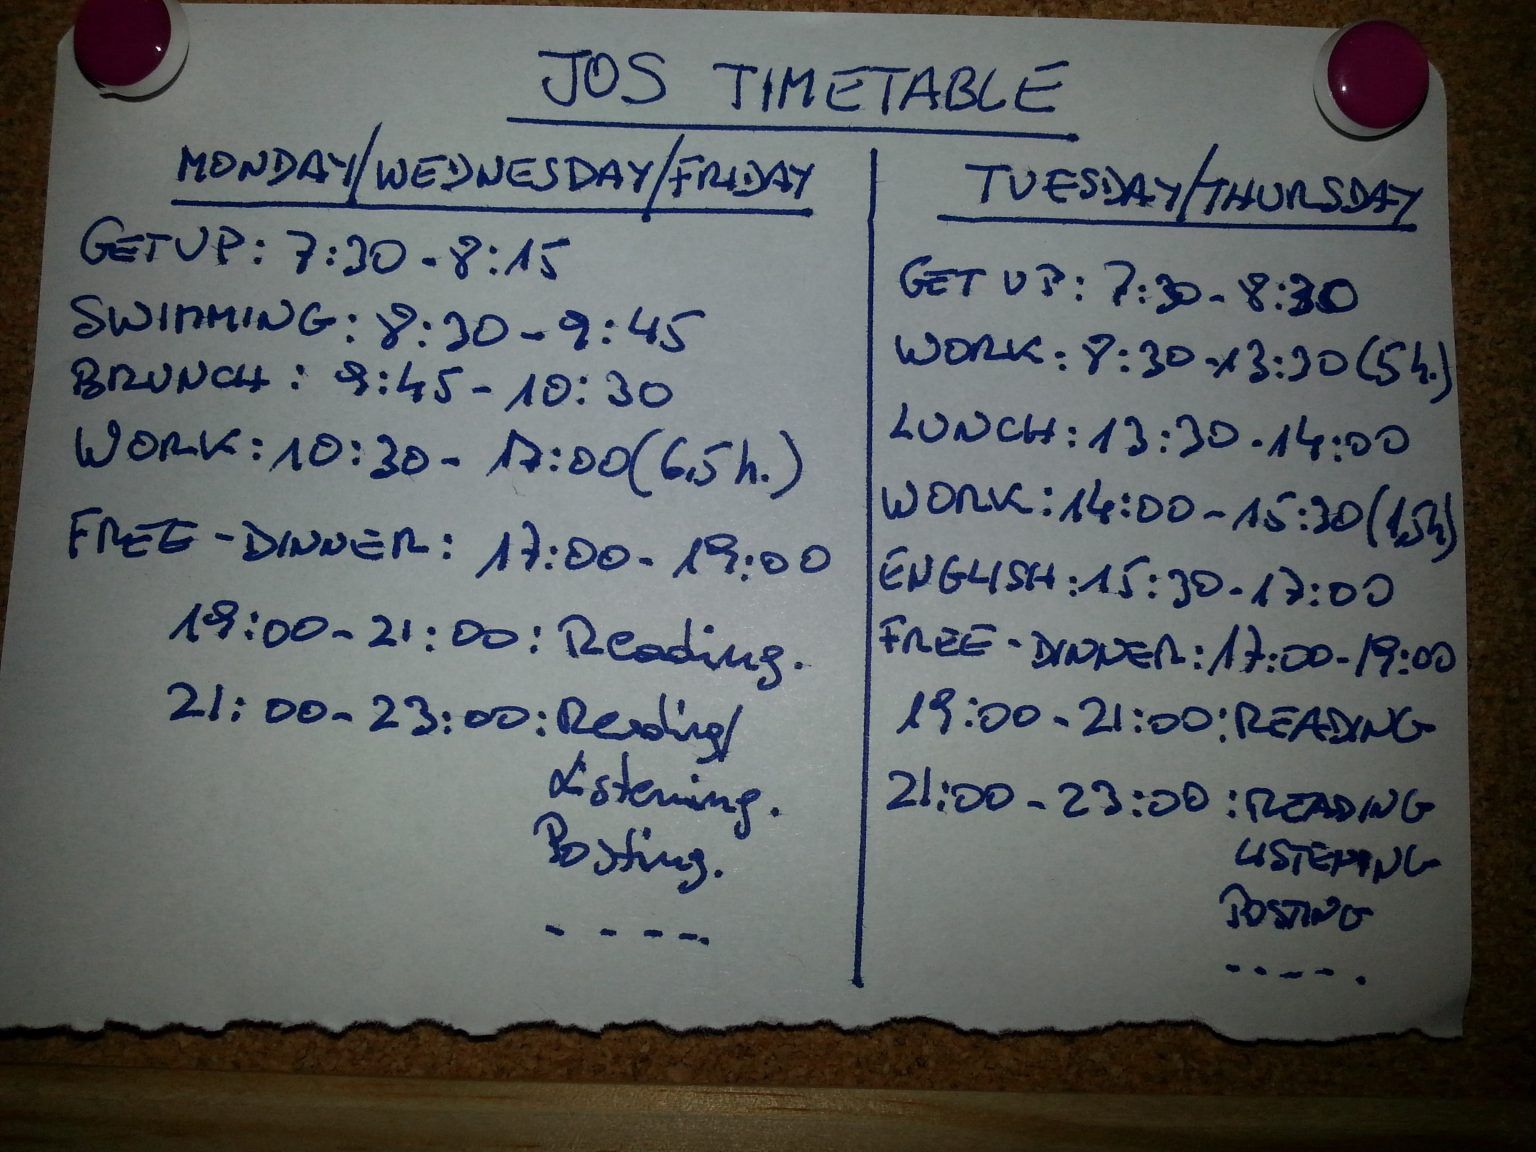 JOS TIMETABLE
MONDAY/WEDNESDAY/FRIDAY
GET UP: 7:30-8:15
SWIMMING: 8:30-9:45
BRUNCH: 9:45-10:30
WORK: 10:30-17:00 (6,5 h.)
FREE-DINNER: 17:00-19:00
19:00-21:00: Reading.
21:00-23:00: Reading/
Listening.
Posting.
- - - - -.
TUESDAY/THURSDAY
GET UP: 7:30-8:30
WORK: 8:30-13:30 (5 h.)
LUNCH: 13:30-14:00
WORK: 14:00-15:30 (1,5h)
ENGLISH: 15:30-17:00
FREE-DINNER: 17:00-19:00
19:00-21:00: READING
21:00-23:00: READING
LISTENING
POSTING
- - - - .